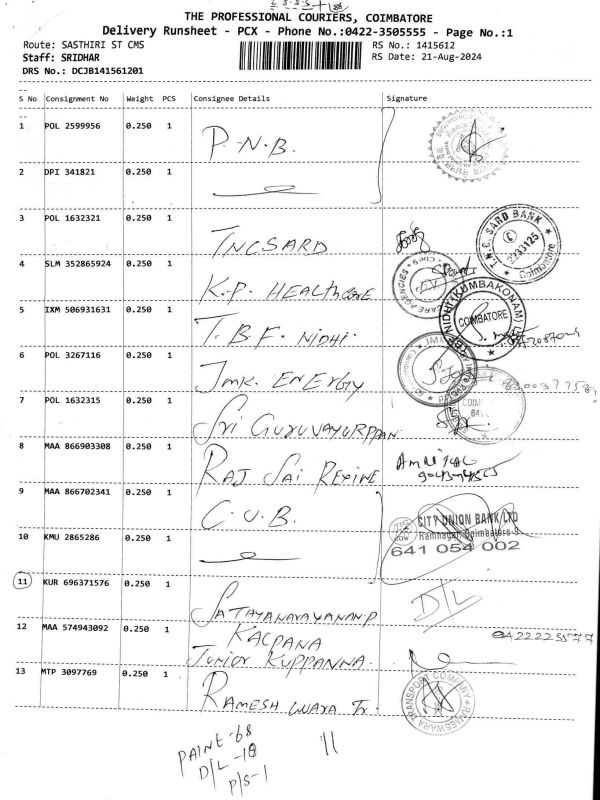 THE PROFESSIONAL COURIERS, COIMBATORE
Delivery Runsheet - PCX - Phone No.:0422-3505555 - Page No.:1
Route: SASTHIRI ST CMS
RS No.: 1415612
Staff: SRIDHAR
RS Date: 21-Aug-2024
DRS No.: DCJB141561201
S No Consignment No Weight PCS Consignee Details Signature
1 POL 2599956 0.250 1 P.N.B.
2 DPI 341821 0.250 1
3 POL 1632321 0.250 1 TNCSARD
T.N.C. SARD BANK
2233125
Coimbatore
4 SLM 352865924 0.250 1 K.P. HEALTHCARE
CARE AGENCIES
5 IXM 506931631 0.250 1 T.B.F. NIDHI.
NIDHI (KUMBAKONAM)
COIMBATORE
6 POL 3267116 0.250 1 JMK. ENERGY
7 POL 1632315 0.250 1 SRI GURUVAYURPPAN
8 MAA 866903308 0.250 1 RAJ SAI REXINE
9 MAA 866702341 0.250 1 C.U.B.
CITY UNION BANK LTD
Ramnagar, Coimbatore-9
641 054 002
10 KMU 2865286 0.250 1
11 KUR 696371576 0.250 1 SATAYANARAYANAN.P D/L
12 MAA 574943092 0.250 1 KALPANA
JUNIOR KUPPANNA.
13 MTP 3097769 0.250 1 RAMESHWARA Tr.
RAMESWARA TRANSPORT COMPANY
PAINE-68
D/L-18
P/S-1
11